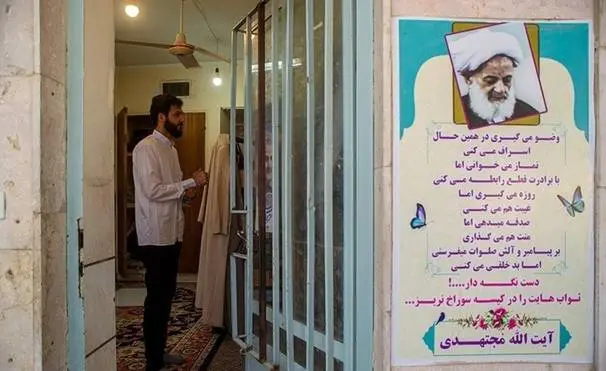 وضو می گیری در همین حال
اسراف می کنی
نماز می خوانی اما
با برادرت قطع رابطه می کنی
روزه می گیری اما
غیبت هم می کنی
صدقه میدهی اما
منت هم می گذاری
بر پیامبر و آلش صلوات میفرستی
اما بد خلقی می کنی
دست نگه دار....!
ثواب هایت را در کیسه سوراخ نریز...
آیت الله مجتهدی